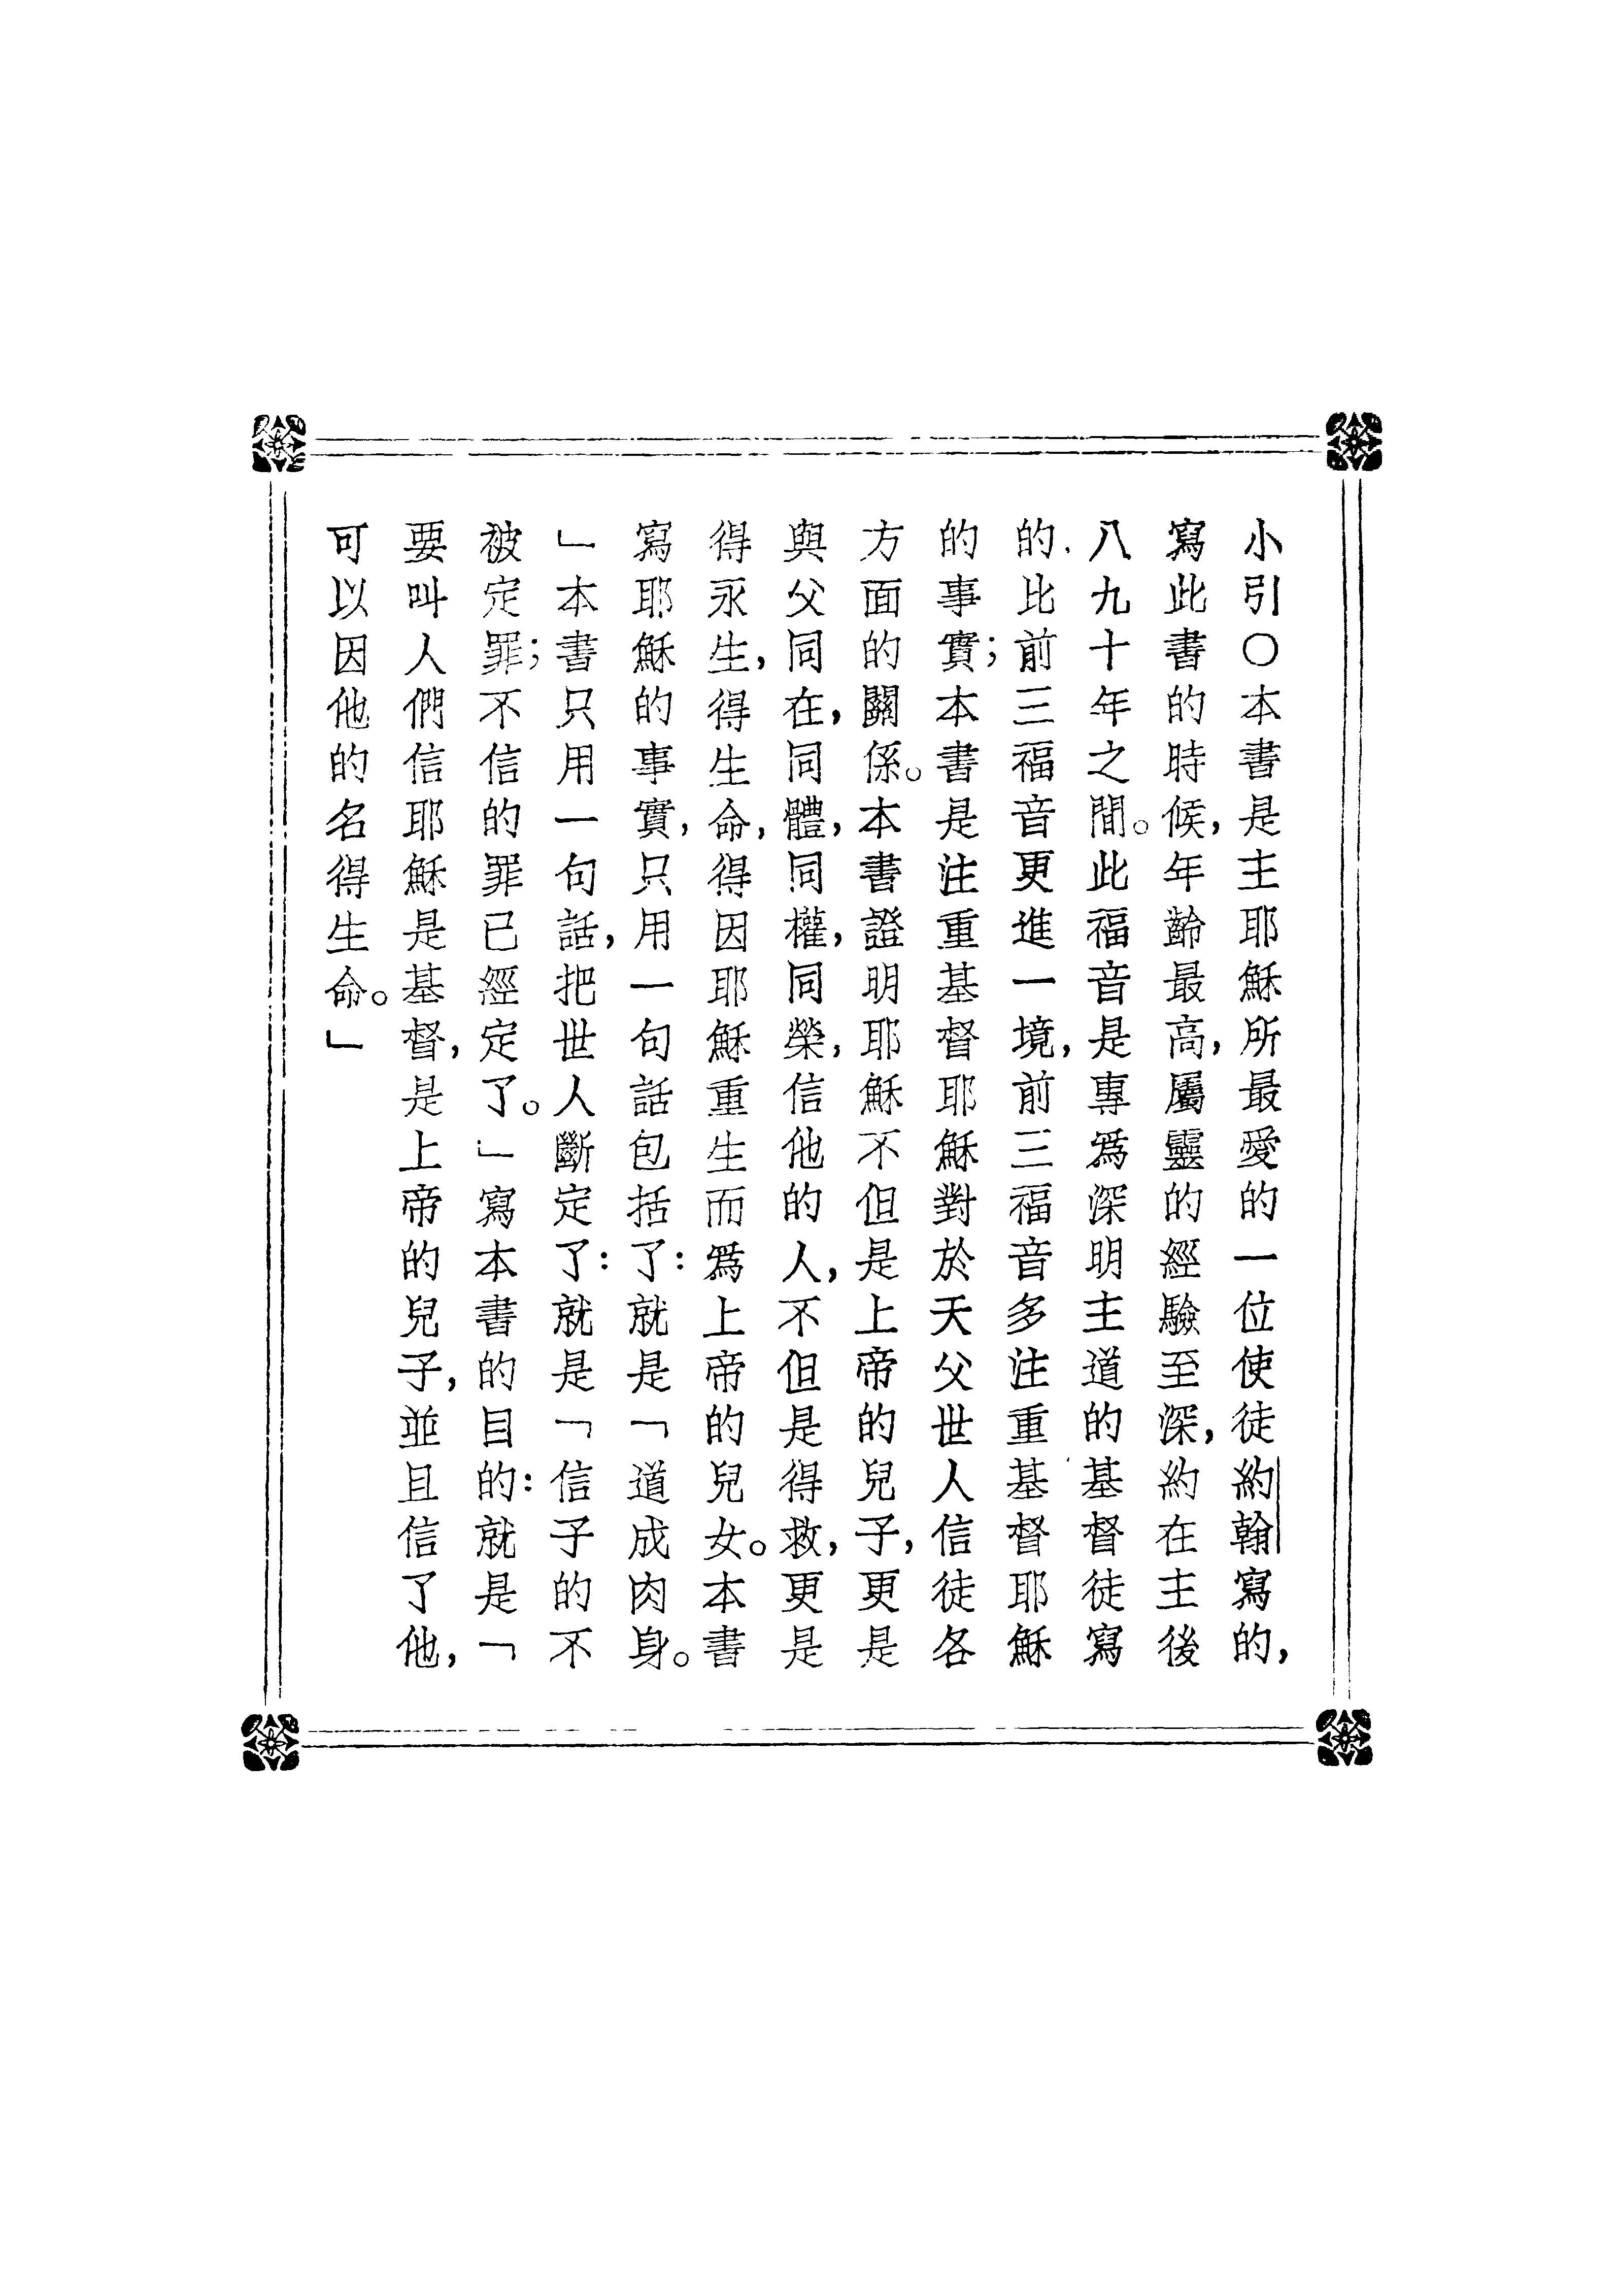 小引〇本書是主耶穌所最愛的一位使徒約翰寫的,
寫此書的時候,年齡最高,屬靈的經驗至深,約在主後
八九十年之間。此福音是專爲深明主道的基督徒寫
的、比前三福音更進一境,前三福音多注重基督耶穌
的事實;本書是注重基督耶穌對於天父世人信徒各
方面的關係。本書證明耶穌不但是上帝的兒子,更是
與父同在,同體,同權,同榮,信他的人,不但是得救,更是
得永生,得生命,得因耶穌重生而爲上帝的兒女。本書
寫耶穌的事實,只用一句話包括了:就是「道成肉身。
」本書只用一句話,把世人斷定了:就是「信子的不
被定罪;不信的罪已經定了。」寫本書的目的:就是「
要叫人們信耶穌是基督,是上帝的兒子,並且信了他,
可以因他的名得生命。」